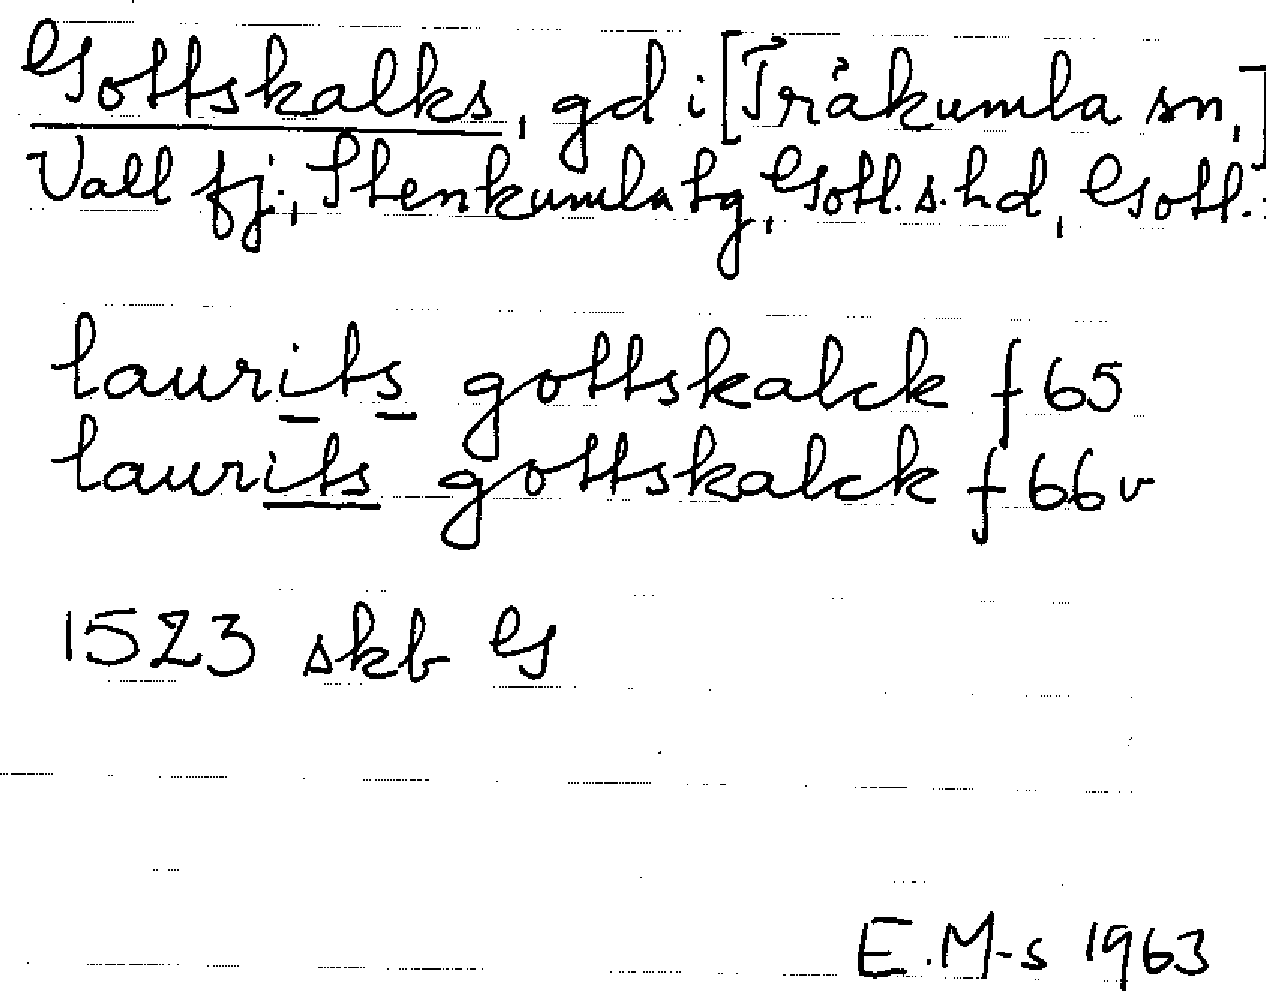 Gottskalks, gd i [Träkumla sn,]
Vall fj., Stenkumla tg, Gotl. s. hd, Gotl.
laurits gottskalck f 65
laurits gottskalck f 66 v
1523 skb G
E. M-s 1963